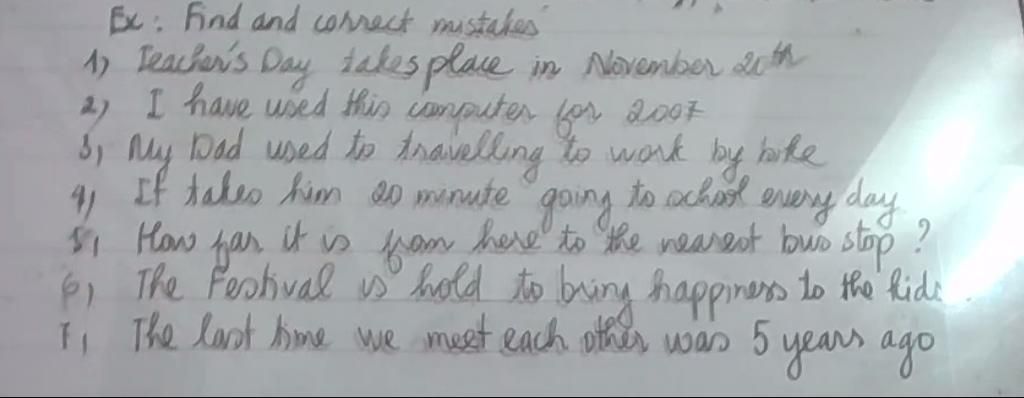 Ex: Find and correct mistakes
1) Teacher's Day takes place in November 20th
2) I have used this computer for 2007
3) My Dad used to travelling to work by bike
4) It takes him 20 minute going to school every day
5) How far it is from here to the nearest bus stop ?
6) The Festival is hold to bring happiness to the kids.
7) The last time we meet each other was 5 years ago